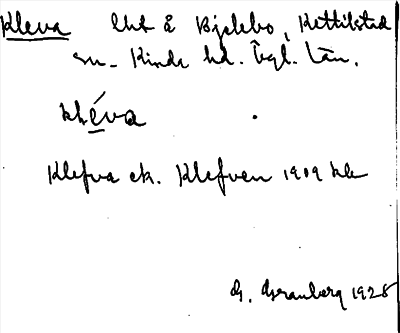 Kleva lht å Bjelebo, Kettilstad
sn. Kinda hd. Ögl. län.
kléva
Klefva ek. Klefven 1909 kk
G. Granberg 1928